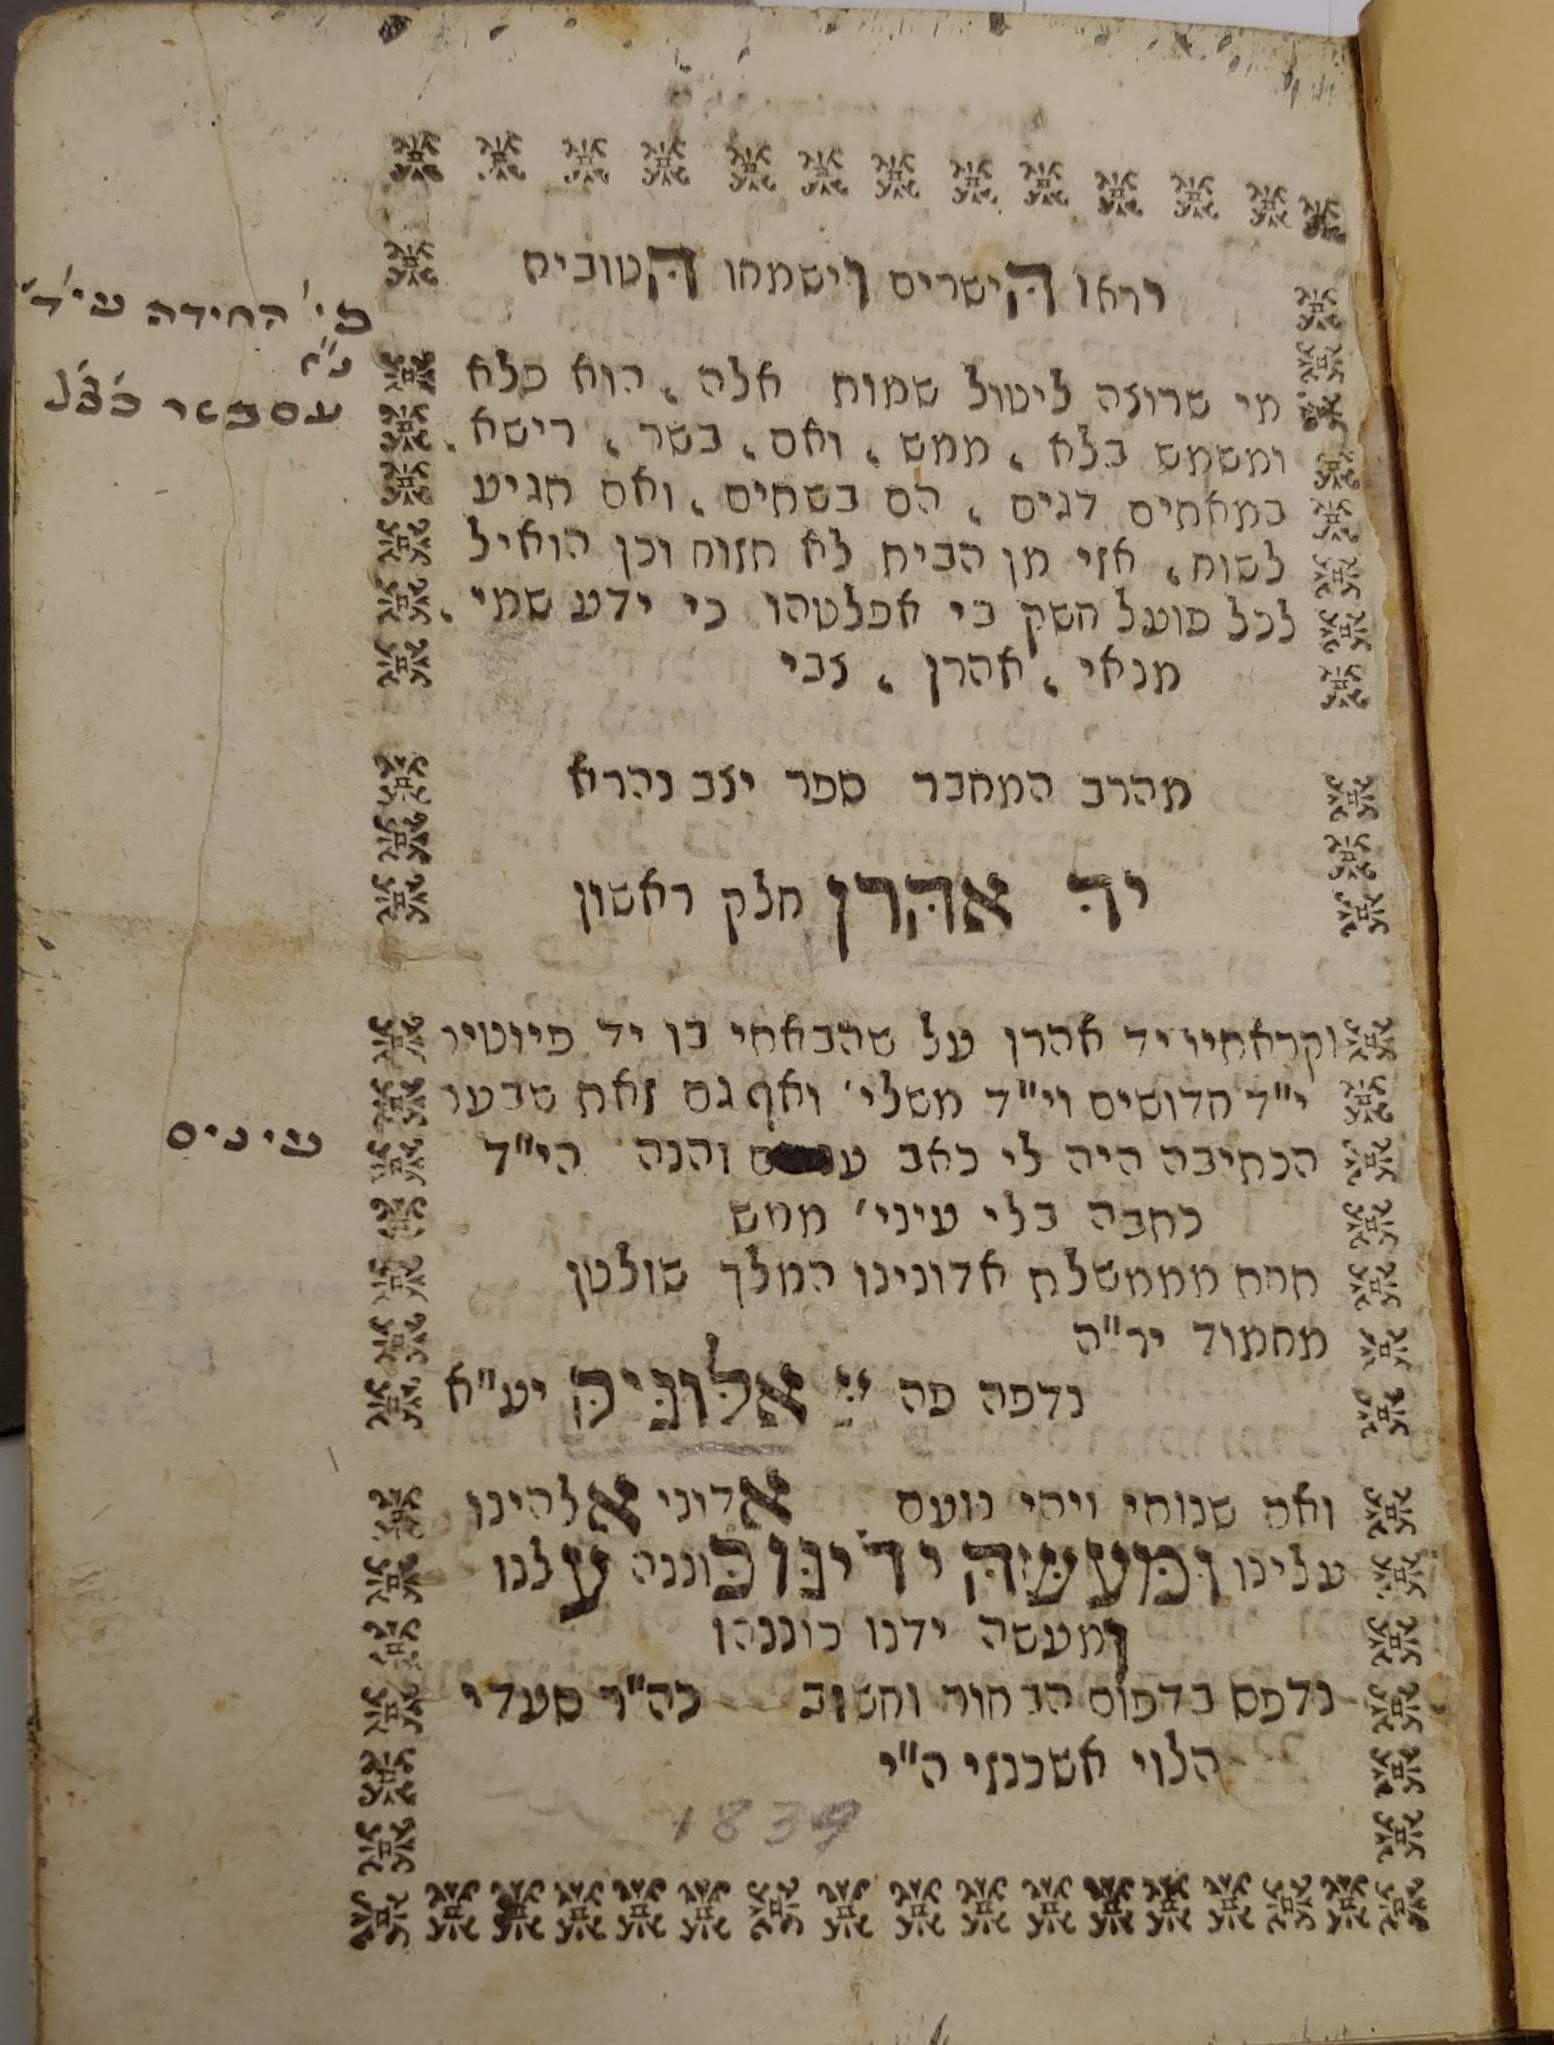 יראו הישרים וישמחו הטובים
מי שרוצה ליטול שמות אלה, הוא פלא
ומשמש בלא, ממש, ואם, בשר, רישא.
במאתים דגים, הם בשתים, ואם תגיע
לשוח, אזי מן הבית לא תזוח וכן הואיל
לכל פועל חשק בי אפלטהו כי ידע שמי.
מנאי, אהרן, צבי
מהרב המחבר ספר יצב נהרא
יד אהרן חלק ראשון
וקראתיו יד אהרן על שהבאתי בו יד פיוטי׳
י"ד חדושים וי"ד משלי׳ ואף גם זאת שבעו׳
הכתיבה היה לי כאב והנה הי"ד
כתבה בלי עיני׳ ממש
עינים
תחת ממשלת אדונינו המלך שולטן
מחמוד יר"ה
נדפה פה שאלוניקי יע"א
ואת שנותי ויהי נועם אדוני אלהינו
עלינו ומעשה ידינו כוננה עלנו
ומעשה ידנו כוננהו
נדפס בדפוס הבחור וחשוב כה"ר סעדי
הלוי אשכנזי ה"י
1839